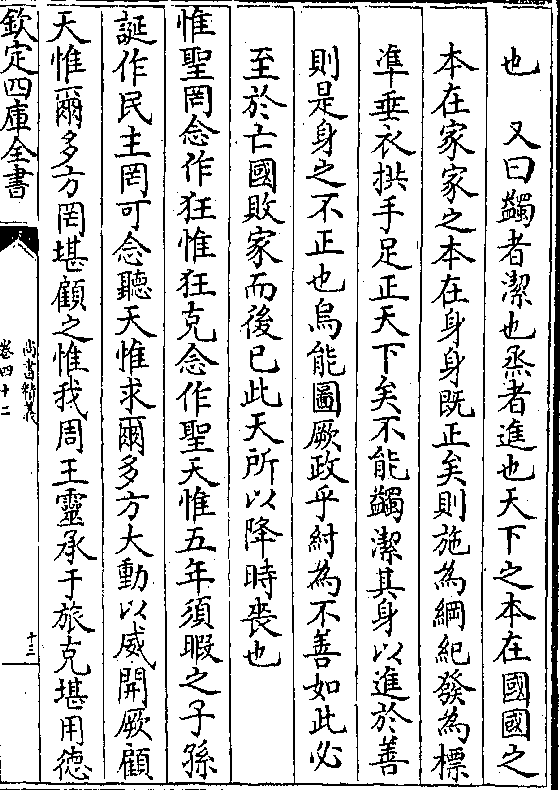 也　又曰蠲者潔也烝者進也天下之本在國國之
本在家家之本在身身既正矣則施為綱紀發為標
準垂衣拱手足正天下矣不能蠲潔其身以進於善
則是身之不正也烏能圖厥政乎紂為不善如此必
至於亡國敗家而後已此天所以降時喪也
惟聖罔念作狂惟狂克念作聖天惟五年須暇之子孫
誕作民主罔可念聽天惟求爾多方大動以威開厥顧
天惟爾多方罔堪顧之惟我周王靈承于旅克堪用德
欽定四庫全書
尚書精義
卷四十二
十三